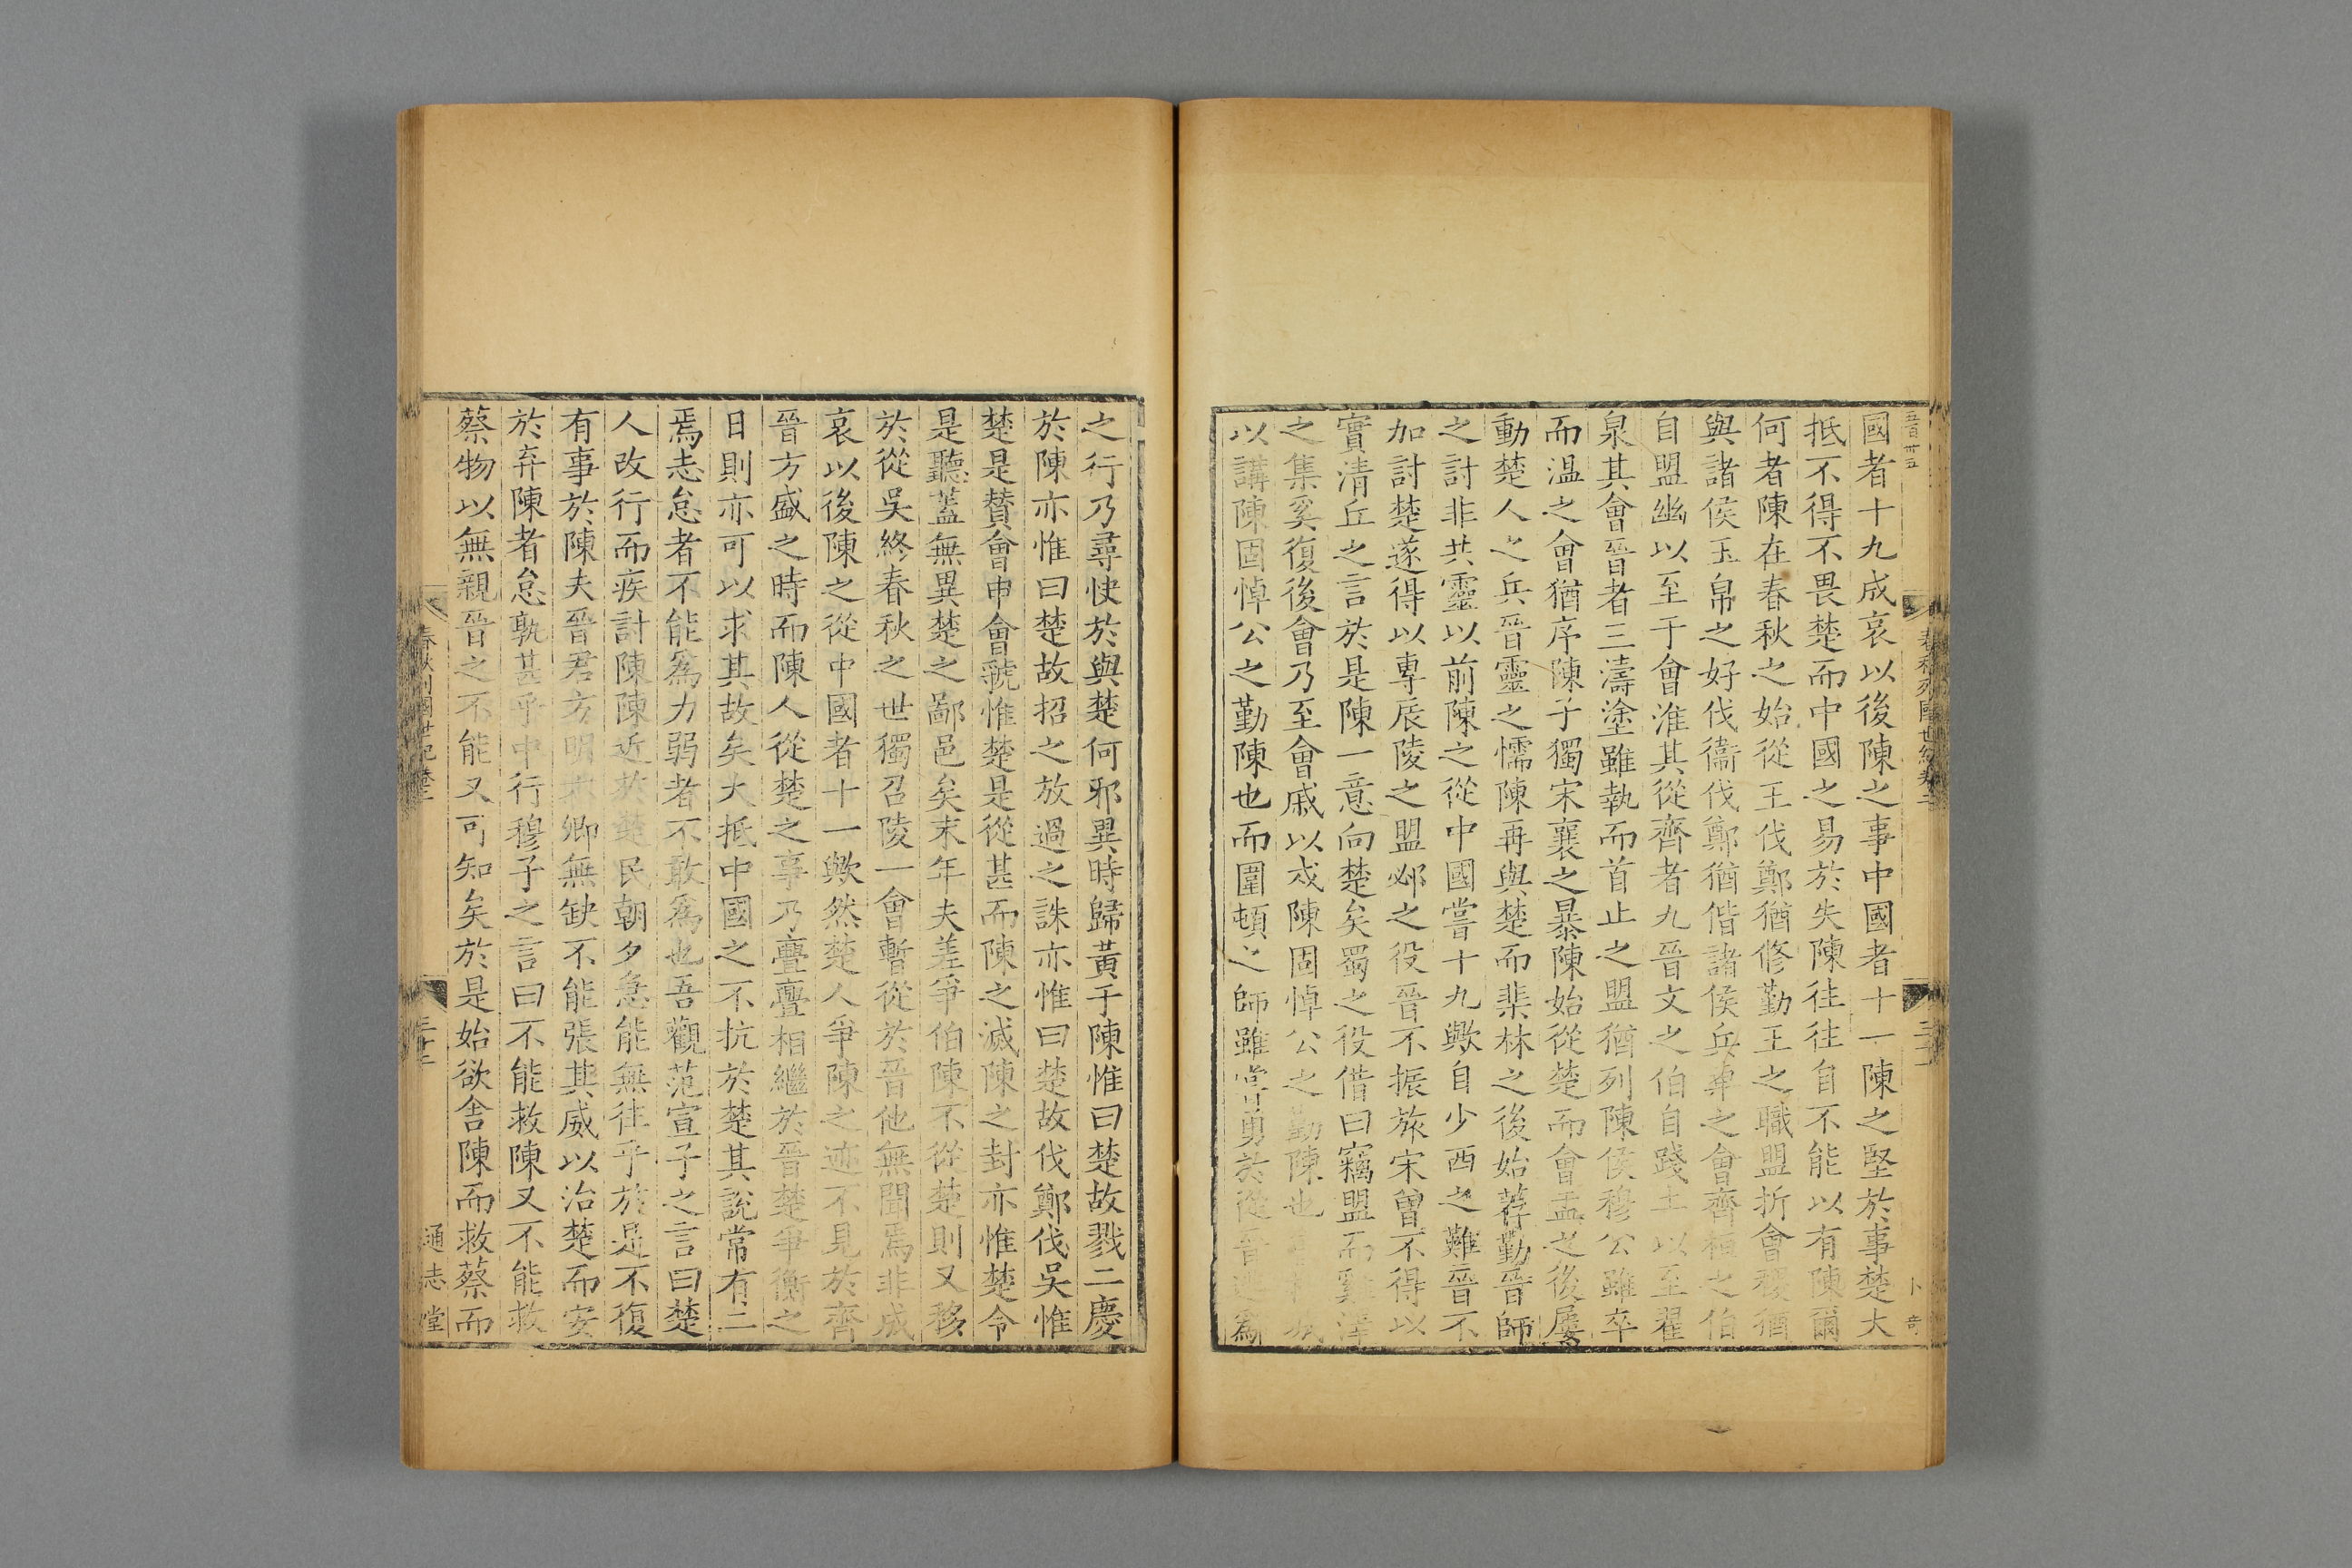 國者十九成哀以後陳之事中國者十一陳之堅於事楚大
抵不得不畏楚而中國之易於失陳往往自不能以有陳爾
何者陳在春秋之始從王伐鄭猶修勤王之職盟折會稷猶
與諸侯玉帛之好伐衞伐鄭猶偕諸侯兵車之會齊桓之伯
自盟幽以至于會淮其從齊者九晉文之伯自踐土以至翟
泉其會晉者三濤塗雖執而首止之盟猶列陳侯穆公雖卒
而温之會猶序陳子獨宋襄之暴陳始從楚而會盂之後屢
動楚人之兵晉靈之懦陳再與楚而棐林之後始荐勤晉師
之討非共靈以前陳之從中國嘗十九歟自少西之難晉不
加討楚遂得以專辰陵之盟邲之役晉不振旅宋曾不得以
實清丘之言於是陳一意向楚矣蜀之役借曰竊盟而雞澤
之集奚復後會乃至會戚以戍陳固悼公之勤陳也
以講陳固悼公之勤陳也而圍頓之師雖嘗勇於從晉逃爲
之行乃尋快於與楚何邪異時歸黃于陳惟曰楚故戮二慶
於陳亦惟曰楚故招之放過之誅亦惟曰楚故伐鄭伐吳惟
楚是贊會申會虢惟楚是從甚而陳之滅陳之封亦惟楚令
是聽蓋無異楚之鄙邑矣末年夫差爭伯陳不從楚則又移
於從吳終春秋之世獨召陵一會暫從於晉他無聞焉非成
哀以後陳之從中國者十一歟然楚人爭陳之迹不見於齊
晉方盛之時而陳人從楚之事乃亹亹相繼於晉楚爭衡之
日則亦可以求其故矣大抵中國之不抗於楚其說常有二
焉志怠者不能爲力弱者不敢爲也吾觀范宣子之言曰楚
人改行而疾討陳陳近於楚民朝夕急能無往乎於是不復
有事於陳夫晉君方明六卿無缺不能張其威以治楚而安
於弃陳者怠孰甚乎中行穆子之言曰不能救陳又不能救
蔡物以無親晉之不能又可知矣於是始欲舍陳而救蔡而
通志堂